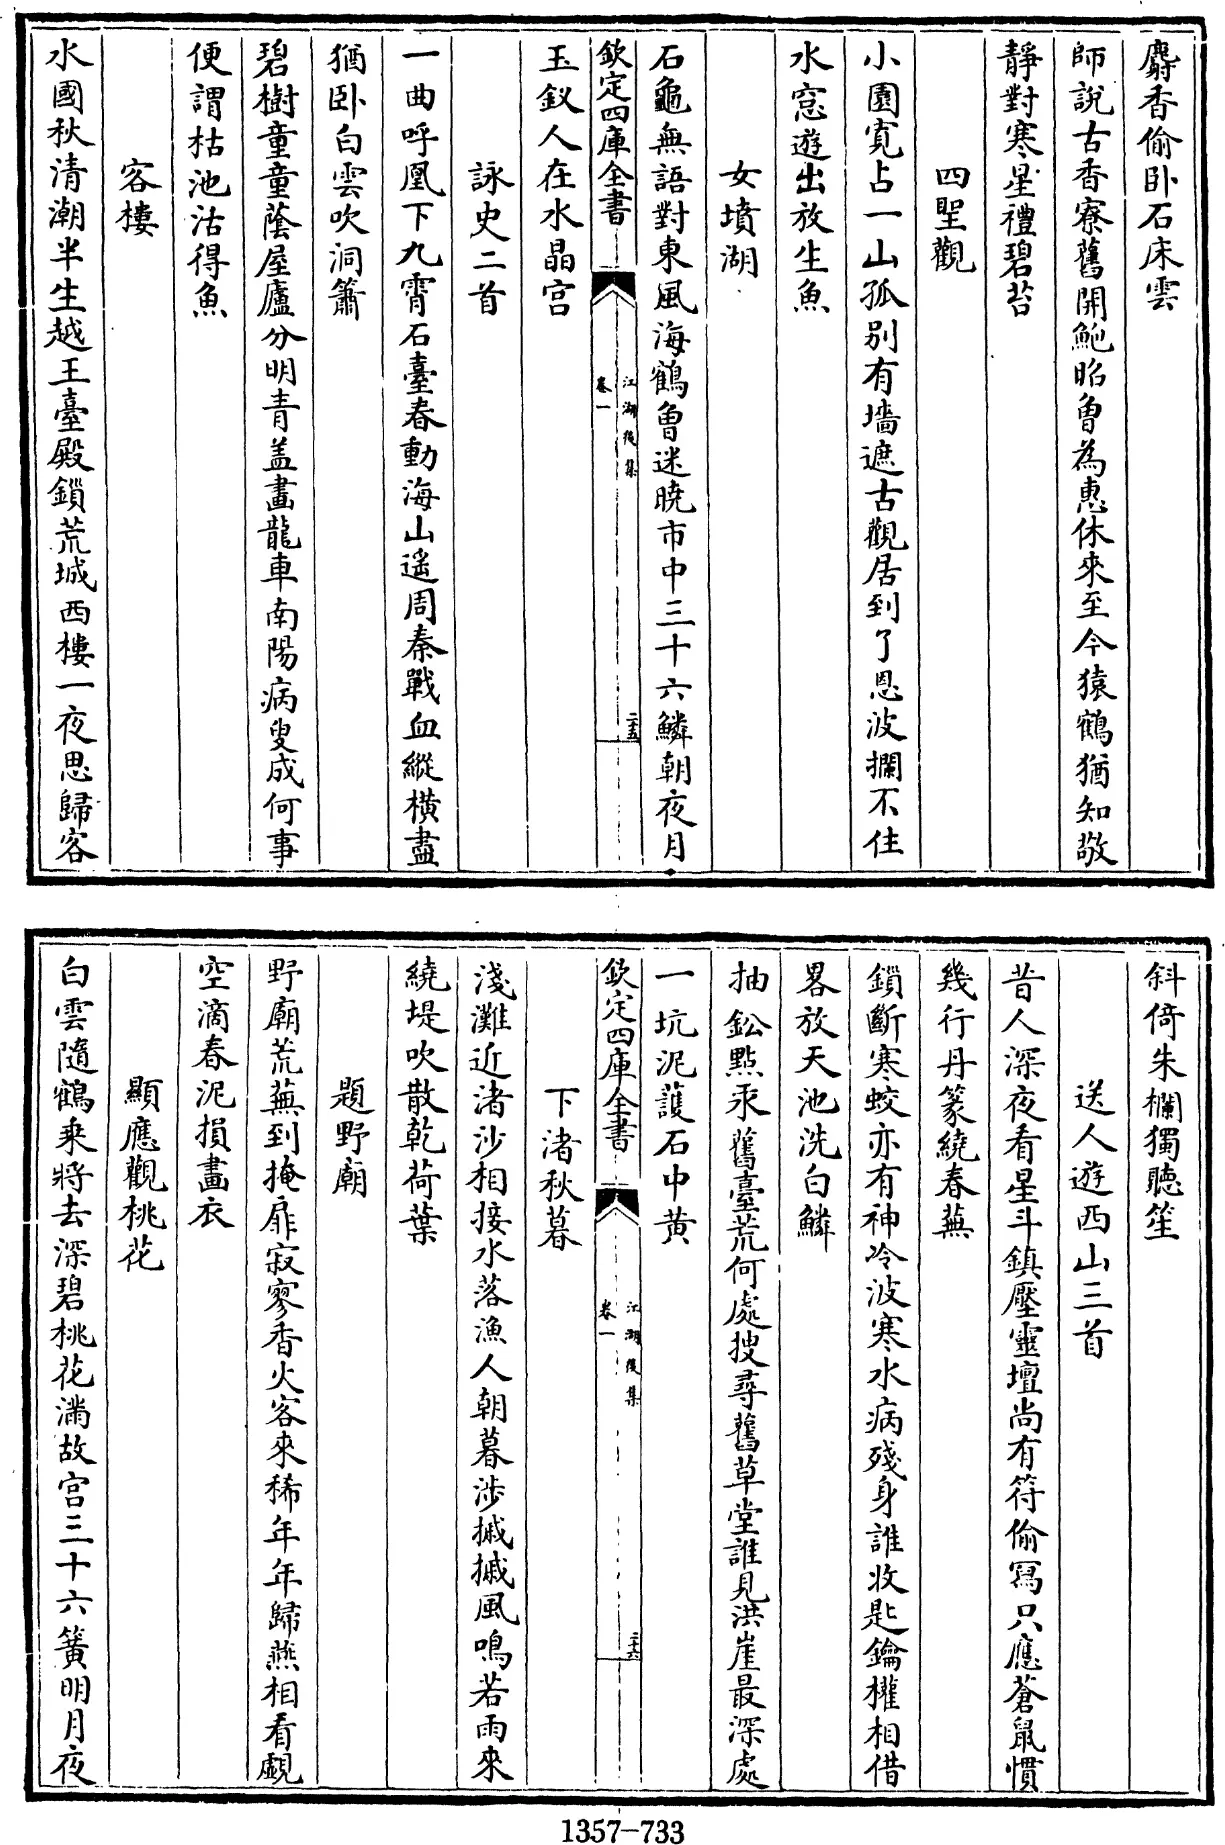 麝香偷卧石床雲
師說古香寮舊開鮑昭曾為惠休來至今猿鶴猶知敬
靜對寒星禮碧苔
四聖觀
小園寛占一山孤别有墻遮古觀居到了恩波攔不住
水窓遊出放生魚
女墳湖
石龜無語對東風海鶴曽迷曉市中三十六鱗朝夜月
欽定四庫全書
江湖後集
卷一
二十五
玉釵人在水晶宫
詠史二首
一曲呼凰下九霄石臺春動海山遥周秦戰血縱横盡
猶卧白雲吹洞簫
碧樹童童蔭屋廬分明青盖畫龍車南陽病叟成何事
便謂枯池活得魚
客樓
水國秋清潮半生越王臺殿鎖荒城西樓一夜思歸客
斜倚朱欄獨聽笙
送人遊西山三首
昔人深夜看星斗鎮壓靈壇尚有符偷冩只應蒼鼠慣
幾行丹篆繞春蕪
鎖斷寒蛟亦有神冷波寒水病殘身誰收匙鑰權相借
畧放天池洗白鱗
抽鈆㸃汞舊臺荒何處搜尋舊草堂誰見洪崖最深處
一坑泥護石中黄
欽定四庫全書
江湖後集
卷一
二十六
下渚秋暮
淺灘近渚沙相接水落漁人朝暮涉摵摵風鳴若雨來
繞堤吹散乾荷葉
題野廟
野廟荒蕪到掩扉寂寥香火客來稀年年歸燕相看覷
空滴春泥損畫衣
顯應觀桃花
白雲隨鶴乗將去深碧桃花滿故宫三十六簧明月夜
1357-733